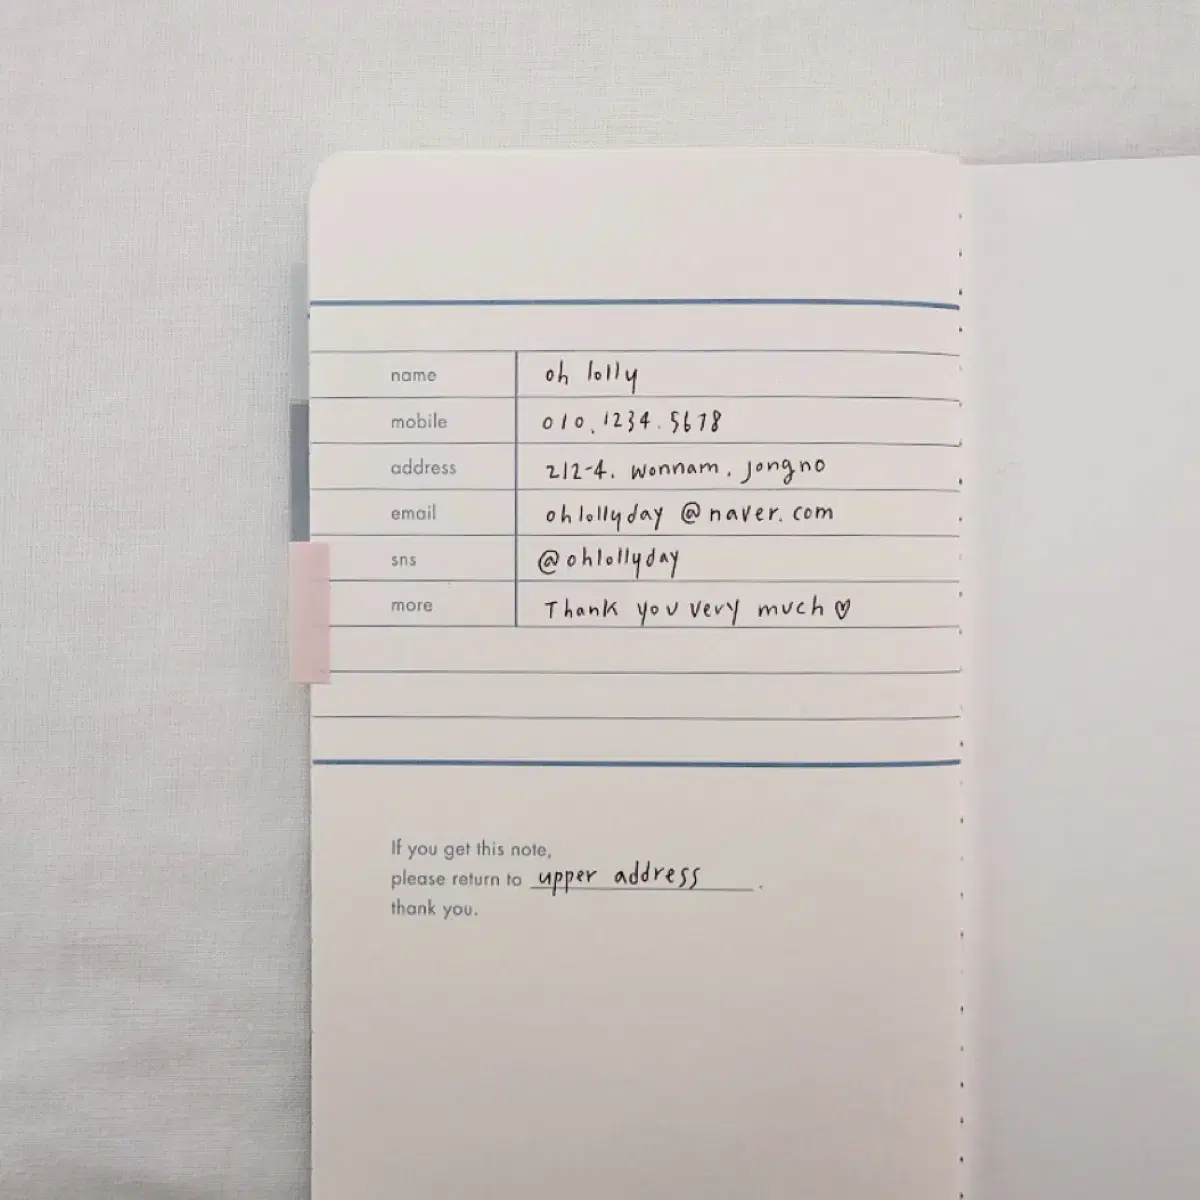 name oh lolly
mobile 010.1234.5678
address 212-4. wonnam. jongno
email ohlollyday@naver.com
sns @ohlollyday
more Thank you very much♡
If you get this note,
please return to upper address.
thank you.